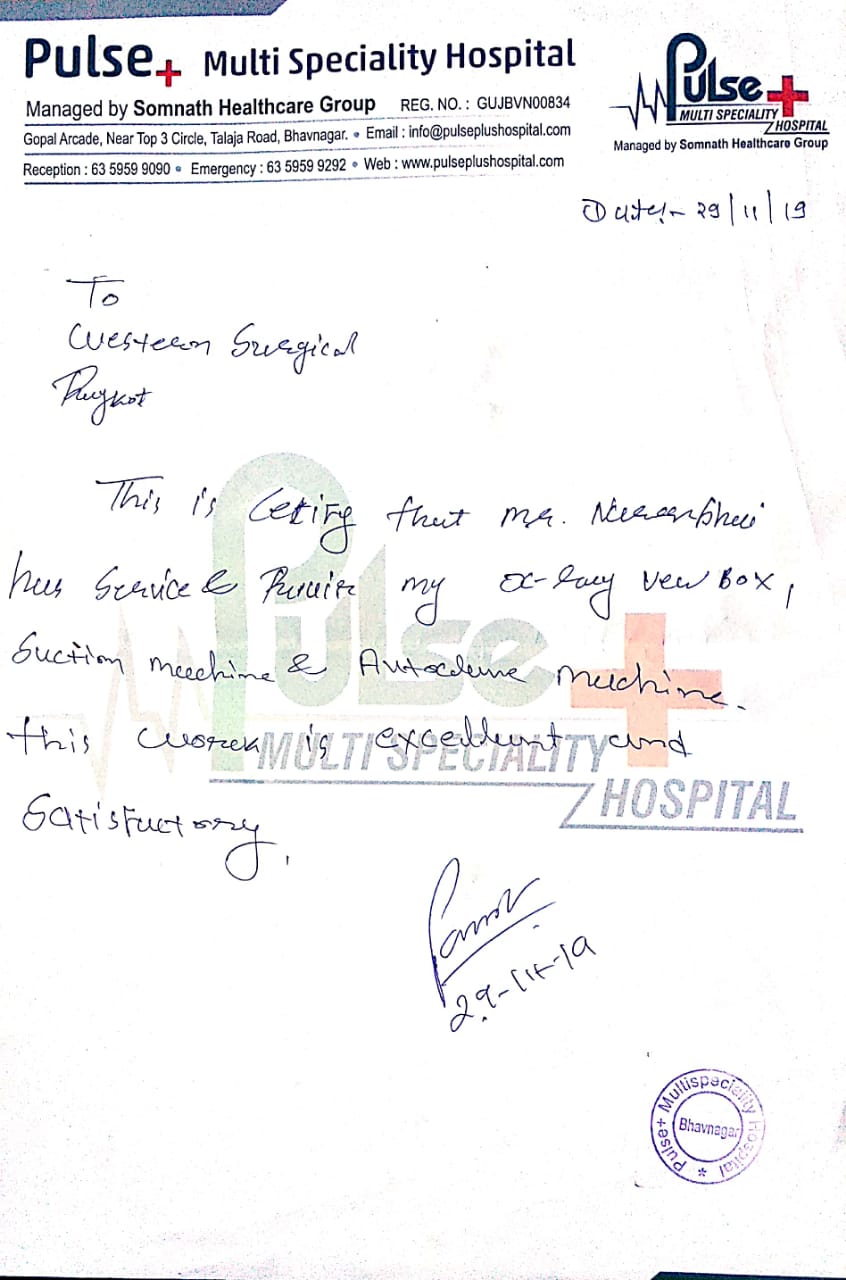 Pulse+ Multi Speciality Hospital
Managed by Somnath Healthcare Group REG. NO. : GUJBVN00834
Gopal Arcade, Near Top 3 Circle, Talaja Road, Bhavnagar. • Email : info@pulseplushospital.com
Reception : 63 5959 9090 • Emergency : 63 5959 9292 • Web : www.pulseplushospital.com
Pulse+
MULTI SPECIALITY
HOSPITAL
Managed by Somnath Healthcare Group
Date:- 29/11/19
To
Western Surgical
Rajkot
This is Cerify that Mr.
has Service & my X-Ray Vew BOX,
Suction machine & Autoclave machine.
this work is excellent and
Satisfactory.
29-11-19
Pulse+
MULTI SPECIALITY
HOSPITAL
Pulse+ Multispeciality Hospital *
Bhavnagar